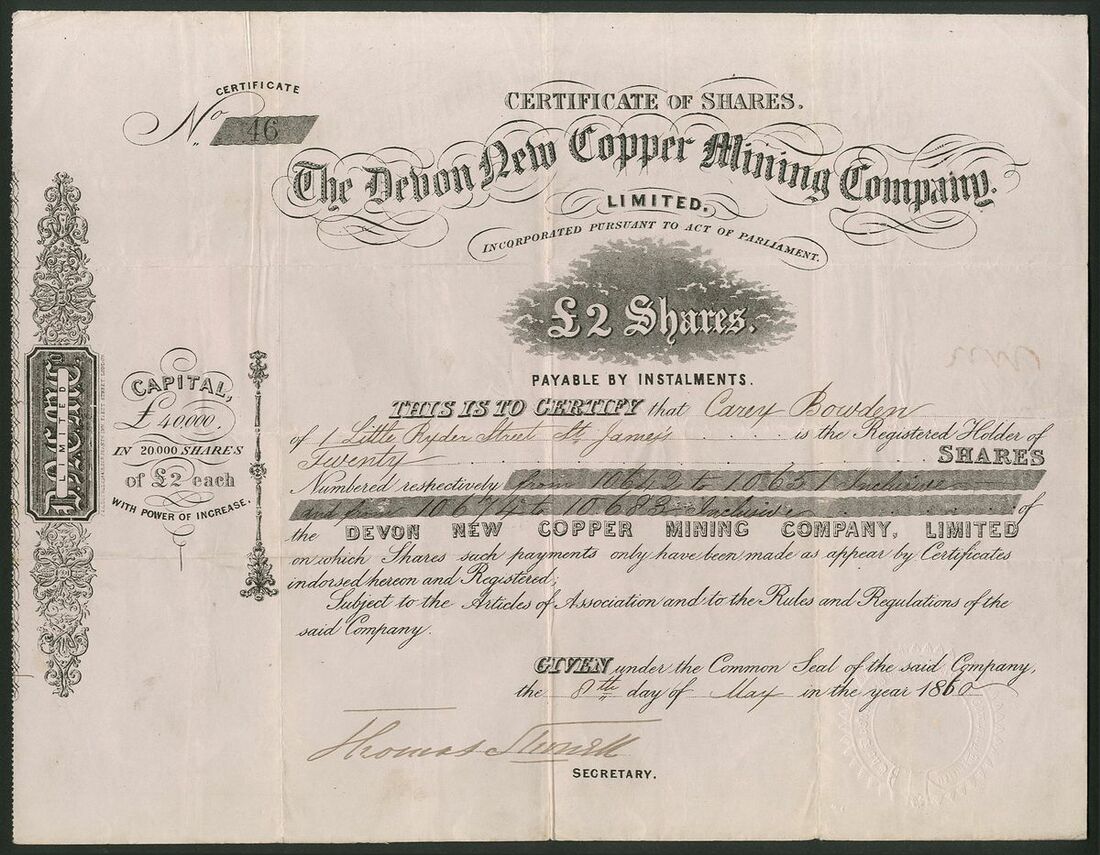 CERTIFICATE
No 46
CERTIFICATE OF SHARES.
The Devon New Copper Mining Company.
LIMITED.
INCORPORATED PURSUANT TO ACT OF PARLIAMENT.
£2 Shares.
PAYABLE BY INSTALMENTS.
LIMITED
CAPITAL,
£40,000.
IN 20,000 SHARES
of £2 each
WITH POWER OF INCREASE.
THIS IS TO CERTIFY that Carey Bowden
of 1 Little Ryder Street St. James's is the Registered Holder of
Twenty SHARES
Numbered respectively from 10642 to 10651 Inclusive
and from 10674 to 10683 Inclusive of
the DEVON NEW COPPER MINING COMPANY, LIMITED
on which Shares such payments only have been made as appear by Certificates
indorsed hereon and Registered;
Subject to the Articles of Association and to the Rules and Regulations of the
said Company.
GIVEN under the Common Seal of the said Company,
the 8th day of May in the year 1860
Thomas
SECRETARY.